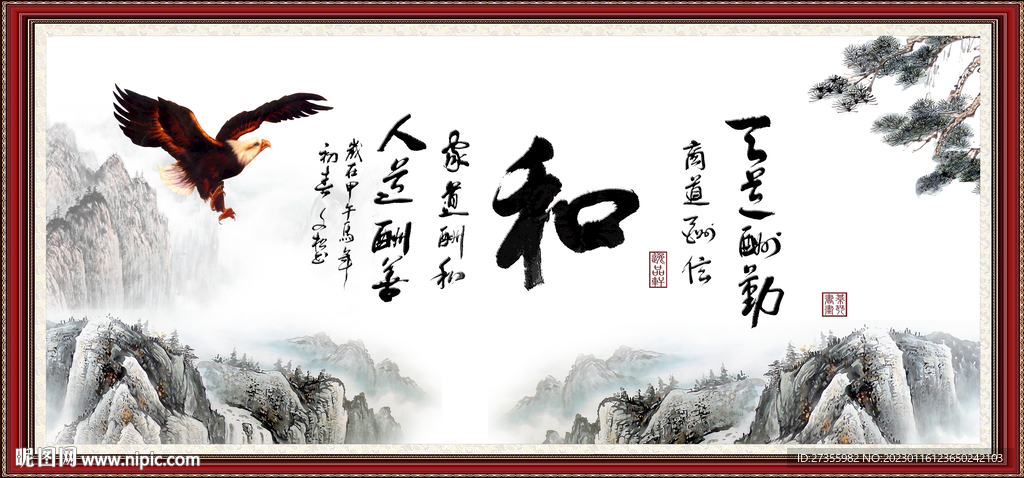 天道酬勤
商道酬信
和
家道酬和
人道酬善
歲在甲午馬年
初春
逸品軒
昵图网 www.nipic.com
ID:27355982 NO:20230116123650242103